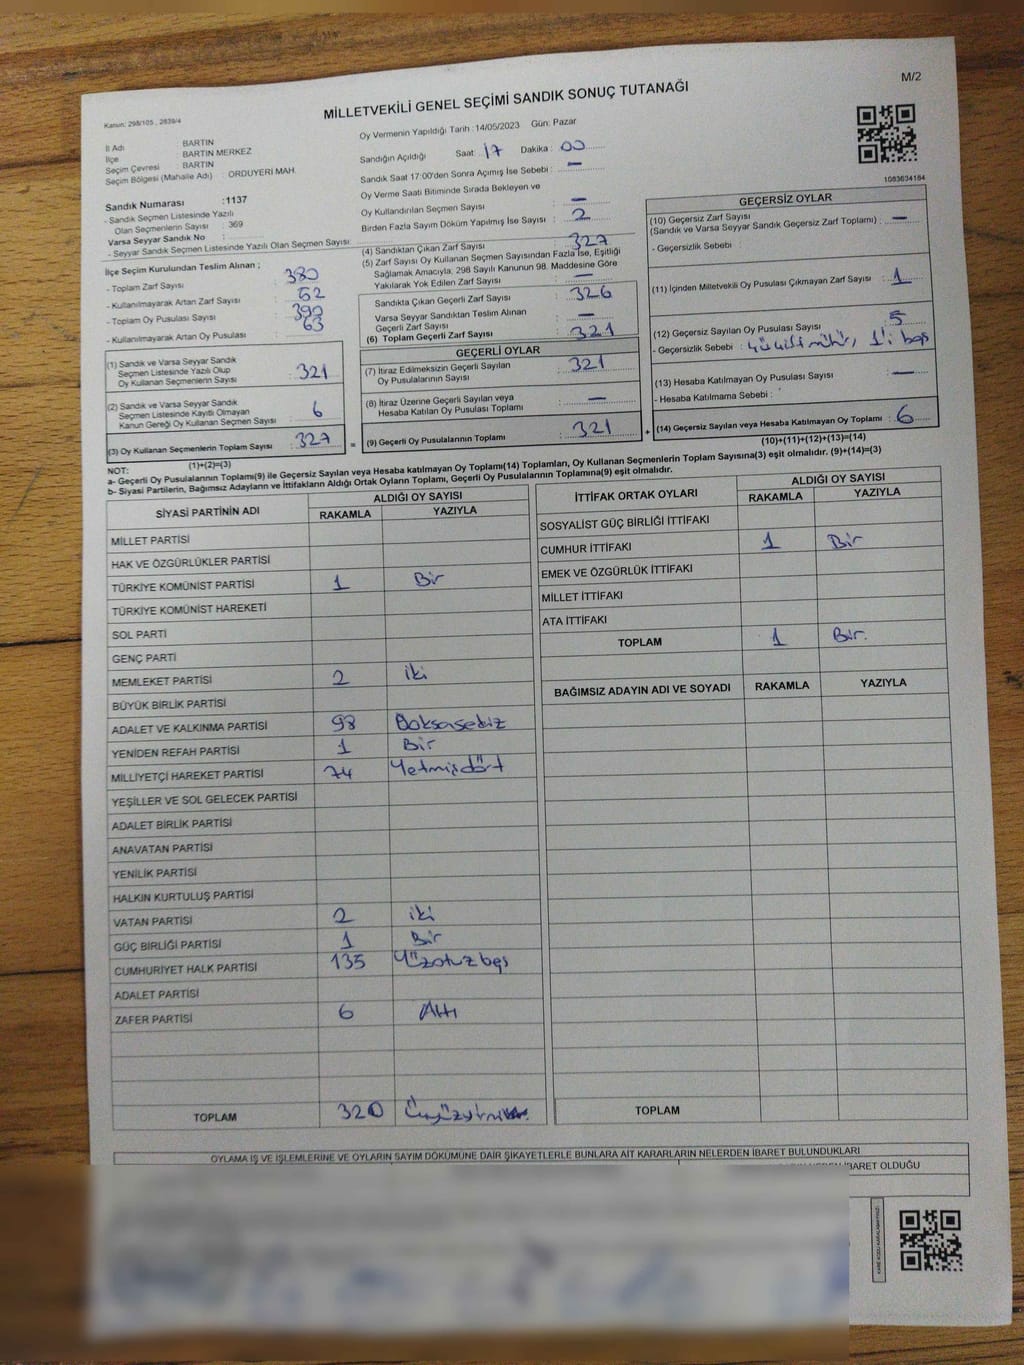 M/2
MİLLETVEKİLİ GENEL SEÇİMİ SANDIK SONUÇ TUTANAĞI
Kanun: 298/105 , 2839/4
İl Adı BARTIN
İlçe BARTIN MERKEZ
Seçim Çevresi BARTIN
Seçim Bölgesi (Mahalle Adı) : ORDUYERİ MAH.
Sandık Numarası :1137
- Sandık Seçmen Listesinde Yazılı
Olan Seçmenlerin Sayısı : 369
Varsa Seyyar Sandık No :
- Seyyar Sandık Seçmen Listesinde Yazılı Olan Seçmen Sayısı:
Oy Vermenin Yapıldığı Tarih : 14/05/2023 Gün: Pazar
Sandığın Açıldığı Saat: 17 Dakika : 00
Sandık Saat 17:00'den Sonra Açımış İse Sebebi : —
Oy Verme Saati Bitiminde Sırada Bekleyen ve
Oy Kullandırılan Seçmen Sayısı : —
Birden Fazla Sayım Döküm Yapılmış İse Sayısı : 2
1083634184
İlçe Seçim Kurulundan Teslim Alınan ;
- Toplam Zarf Sayısı : 380
- Kullanılmayarak Artan Zarf Sayısı : 52
- Toplam Oy Pusulası Sayısı : 390
- Kullanılmayarak Artan Oy Pusulası : 63
(1) Sandık ve Varsa Seyyar Sandık
Seçmen Listesinde Yazılı Olup
Oy Kullanan Seçmenlerin Sayısı : 321
(2) Sandık ve Varsa Seyyar Sandık
Seçmen Listesinde Kayıtlı Olmayan
Kanun Gereği Oy Kullanan Seçmen Sayısı : 6
(3) Oy Kullanan Seçmenlerin Toplam Sayısı : 327
(1)+(2)=(3)
(4) Sandıktan Çıkan Zarf Sayısı : 327
(5) Zarf Sayısı Oy Kullanan Seçmen Sayısından Fazla İse, Eşitliği
Sağlamak Amacıyla, 298 Sayılı Kanunun 98. Maddesine Göre
Yakılarak Yok Edilen Zarf Sayısı : —
Sandıkta Çıkan Geçerli Zarf Sayısı : 326
Varsa Seyyar Sandıktan Teslim Alınan
Geçerli Zarf Sayısı : —
(6) Toplam Geçerli Zarf Sayısı : 321
GEÇERLİ OYLAR
(7) İtiraz Edilmeksizin Geçerli Sayılan
Oy Pusulalarının Sayısı : 321
(8) İtiraz Üzerine Geçerli Sayılan veya
Hesaba Katılan Oy Pusulası Toplamı : —
= (9) Geçerli Oy Pusulalarının Toplamı : 321
GEÇERSİZ OYLAR
(10) Geçersiz Zarf Sayısı
(Sandık ve Varsa Seyyar Sandık Geçersiz Zarf Toplamı) : —
- Geçersizlik Sebebi :
(11) İçinden Milletvekili Oy Pusulası Çıkmayan Zarf Sayısı : 1
(12) Geçersiz Sayılan Oy Pusulası Sayısı : 5
- Geçersizlik Sebebi : mühür, 1'i boş
(13) Hesaba Katılmayan Oy Pusulası Sayısı : —
- Hesaba Katılmama Sebebi :
+ (14) Geçersiz Sayılan veya Hesaba Katılmayan Oy Toplamı : 6
(10)+(11)+(12)+(13)=(14)
NOT:
a- Geçerli Oy Pusulalarının Toplamı(9) ile Geçersiz Sayılan veya Hesaba katılmayan Oy Toplamı(14) Toplamları, Oy Kullanan Seçmenlerin Toplam Sayısına(3) eşit olmalıdır. (9)+(14)=(3)
b- Siyasi Partilerin, Bağımsız Adayların ve İttifakların Aldığı Ortak Oyların Toplamı, Geçerli Oy Pusulalarının Toplamına(9) eşit olmalıdır.
SİYASİ PARTİNİN ADI ALDIĞI OY SAYISI
RAKAMLA YAZIYLA
MİLLET PARTİSİ
HAK VE ÖZGÜRLÜKLER PARTİSİ
TÜRKİYE KOMÜNİST PARTİSİ 1 Bir
TÜRKİYE KOMÜNİST HAREKETİ
SOL PARTİ
GENÇ PARTİ
MEMLEKET PARTİSİ 2 iki
BÜYÜK BİRLİK PARTİSİ
ADALET VE KALKINMA PARTİSİ 98 Doksasekiz
YENİDEN REFAH PARTİSİ 1 Bir
MİLLİYETÇİ HAREKET PARTİSİ 74 Yetmişdört
YEŞİLLER VE SOL GELECEK PARTİSİ
ADALET BİRLİK PARTİSİ
ANAVATAN PARTİSİ
YENİLİK PARTİSİ
HALKIN KURTULUŞ PARTİSİ
VATAN PARTİSİ 2 iki
GÜÇ BİRLİĞİ PARTİSİ 1 Bir
CUMHURİYET HALK PARTİSİ 135 Yüzotuzbeş
ADALET PARTİSİ
ZAFER PARTİSİ 6 Altı
TOPLAM 320
İTTİFAK ORTAK OYLARI ALDIĞI OY SAYISI
RAKAMLA YAZIYLA
SOSYALİST GÜÇ BİRLİĞİ İTTİFAKI
CUMHUR İTTİFAKI 1 Bir
EMEK VE ÖZGÜRLÜK İTTİFAKI
MİLLET İTTİFAKI
ATA İTTİFAKI
TOPLAM 1 Bir.
BAĞIMSIZ ADAYIN ADI VE SOYADI RAKAMLA YAZIYLA
TOPLAM
OYLAMA İŞ VE İŞLEMLERİNE VE OYLARIN SAYIM DÖKÜMÜNE DAİR ŞİKAYETLERLE BUNLARA AİT KARARLARIN NELERDEN İBARET BULUNDUKLARI
İBARET OLDUĞU